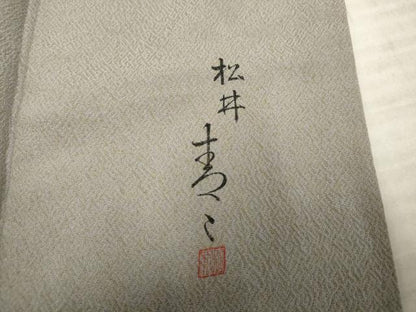 松井青々